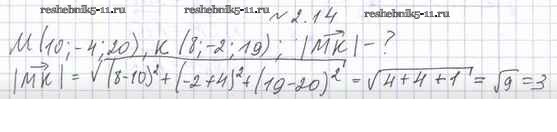 reshebnik5-11.ru
№ 2.14
reshebnik5-11.ru
M(10;-4;20), K(8;-2;19); |MK⃗| - ?
|MK⃗| = √(8-10)²+(-2+4)²+(19-20)² = √4+4+1 = √9 = 3